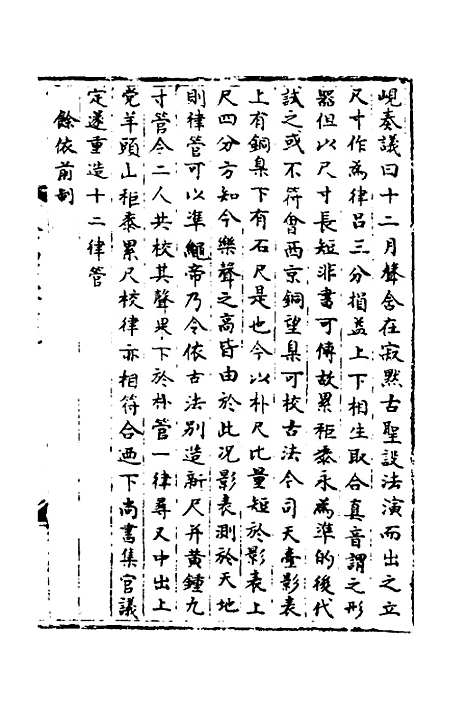 峴奏議曰十二月聲含在寂黙古聖設法演而出之立
尺寸作為律吕三分損益上下相生取合真音謂之形
器但以尺寸長短非書可傳故累秬黍永為準的後代
試之或不符會西京銅望臬可校古法今司天臺影表
上有銅臬下有石尺是也今以朴尺比量短於影表上
尺四分方知今樂聲之高皆由於此况影表測於天地
則律管可以準繩帝乃令依古法别造新尺并黄鍾九
寸管令二人共校其聲果下於朴管一律尋又中出上
党羊頭山秬黍累尺校律亦相符合遂下尚書集官議
定遂重造十二律管
餘依前制